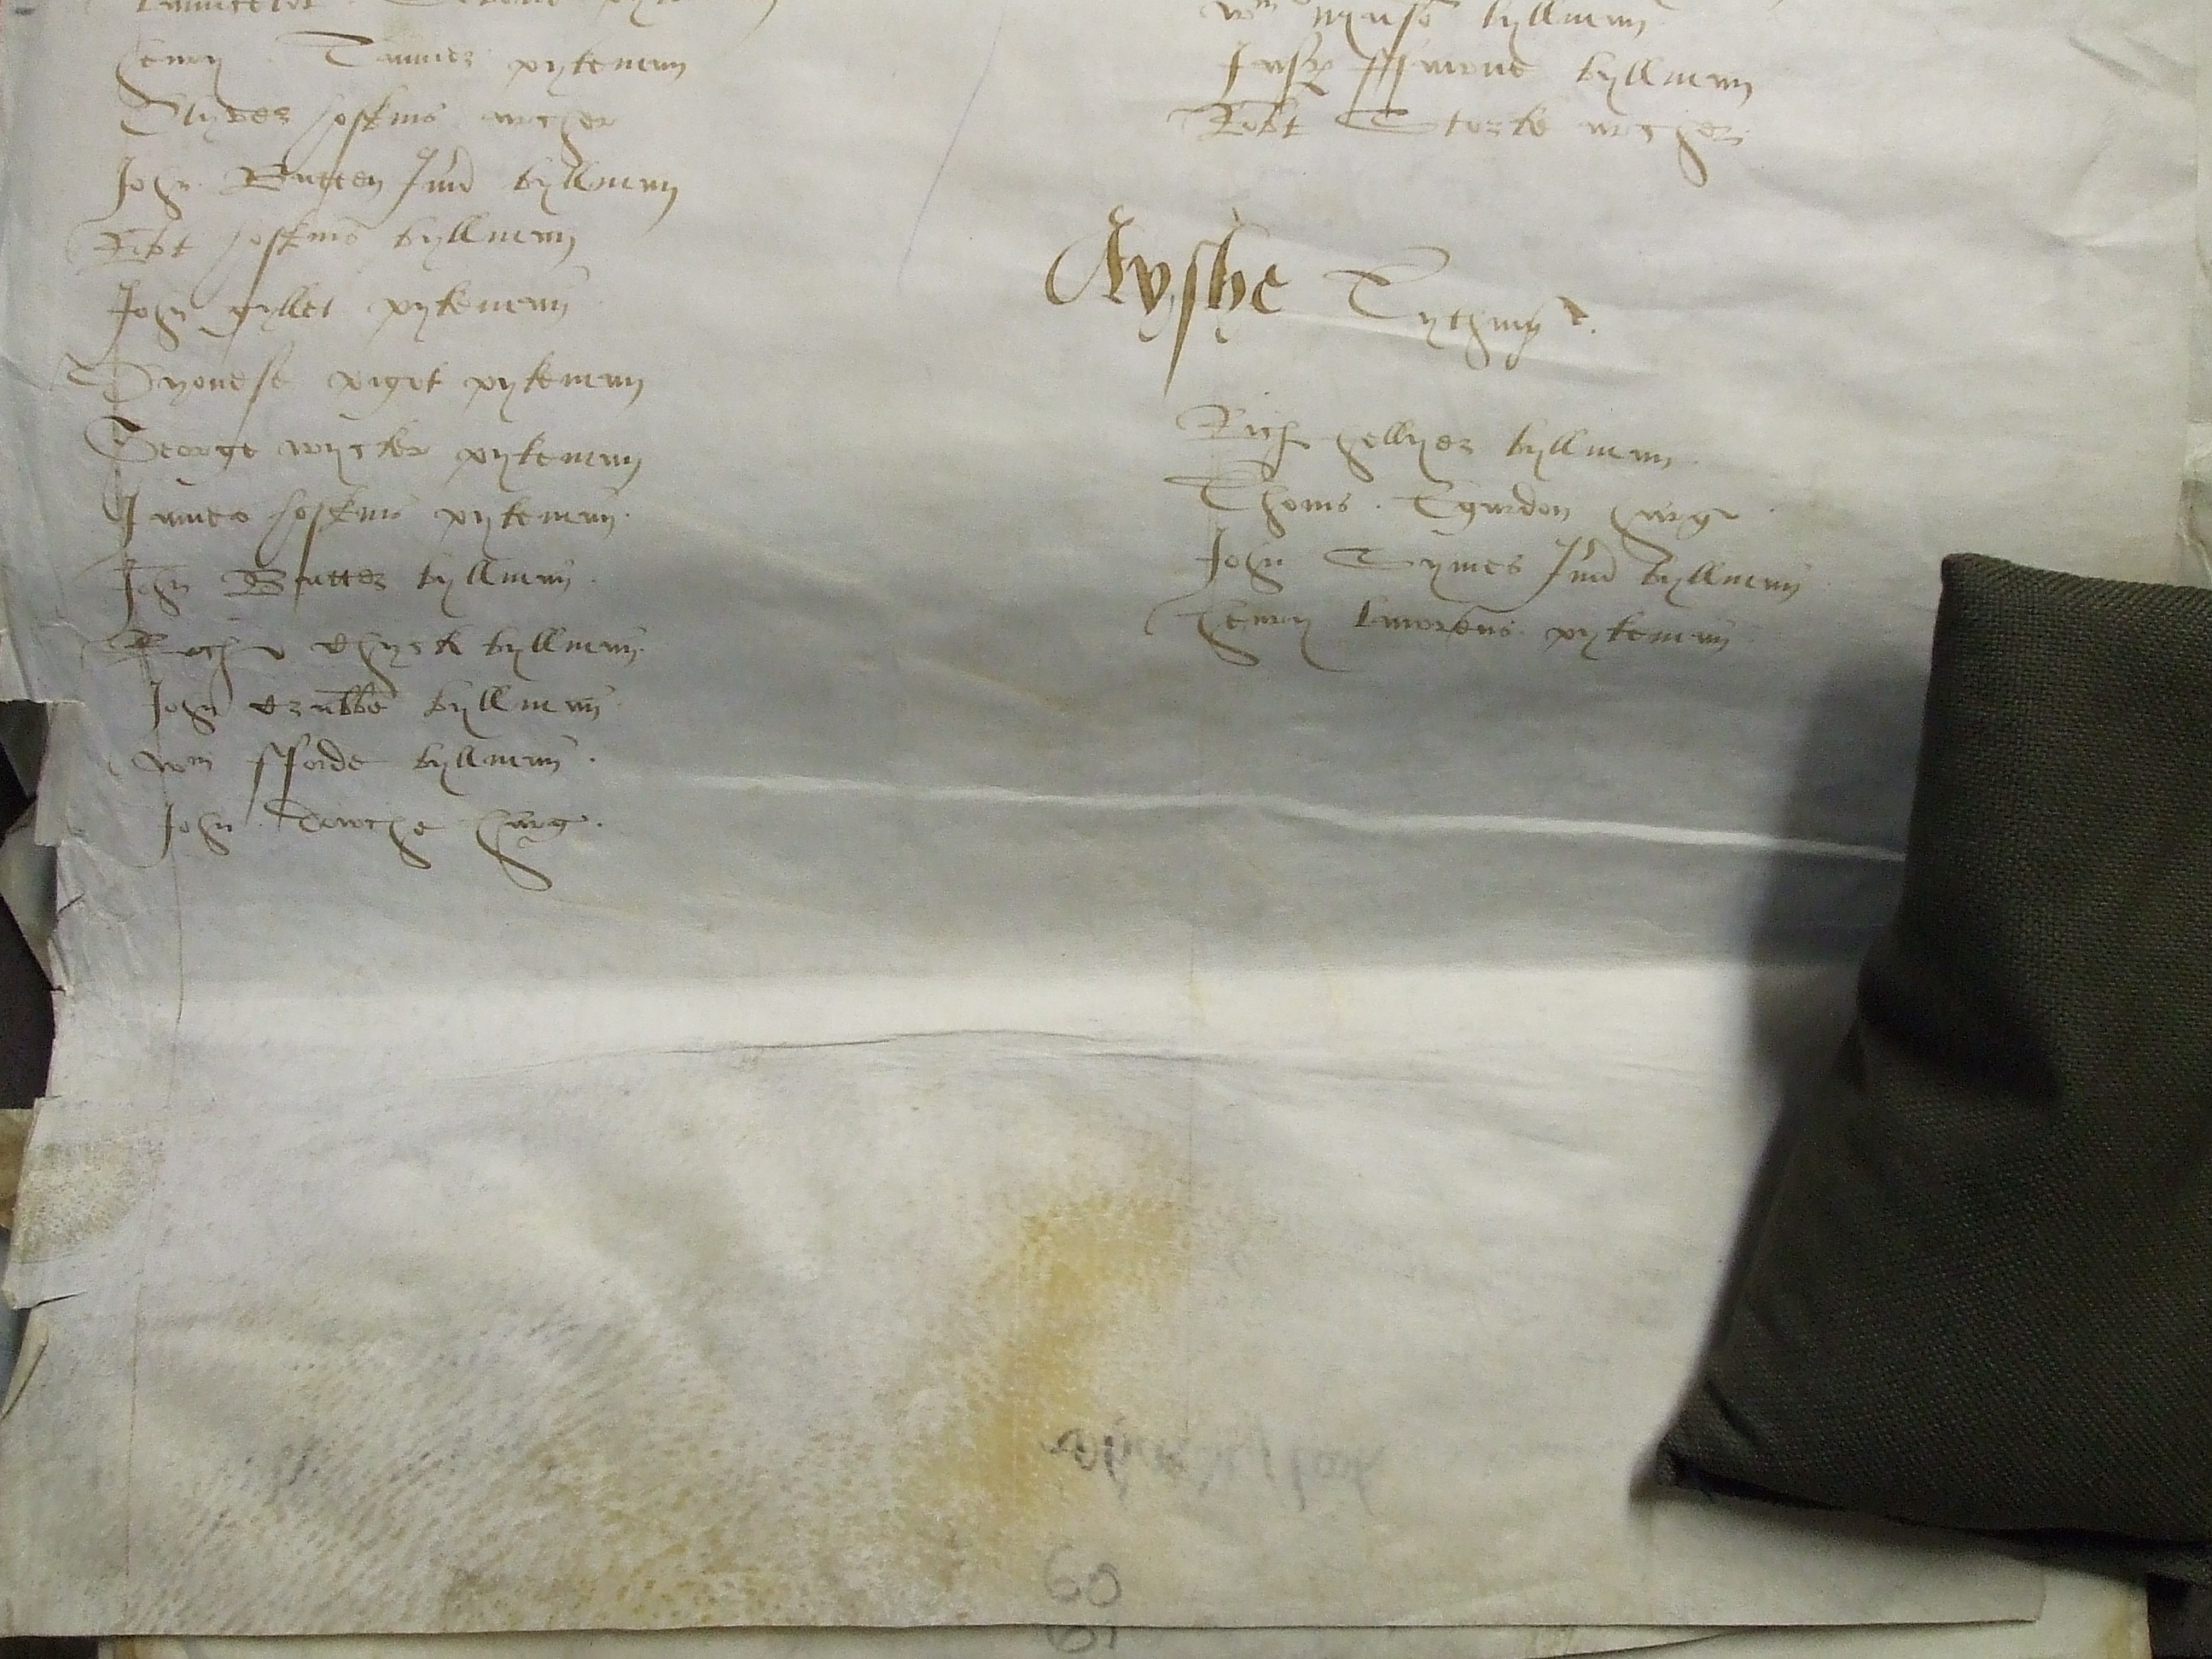 Henry Tanner pykeman
Hoskins archer
John Butten Jun byllman
Robt Hoskins byllman
John gyllet pykeman
Dyonese pigot pykeman
George wycker pykeman
James Hoskins pykeman
John Butter byllman
Rich chyck byllman
John crabbe byllman
Wm fforde byllman
John Harg
Wm byllman
byllman
Robt Storke archer
Ayshe Tythyng
Rich Hellyer byllman
Thoms Harg
John Tymes Jun byllman
Henry Lawrens pykeman
60
61